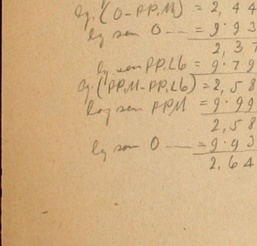 lg. (O-PP.M) = 2, 4 4
lg sen O = 9.9 3
2, 3 7
lg sen PP.L6 = 9.7 9
lg. (PP.M-PP.L6) = 2, 5 8
log sen PP.M = 9.9 9
2, 5 8
lg sen O = 9.9 3
2, 6 4